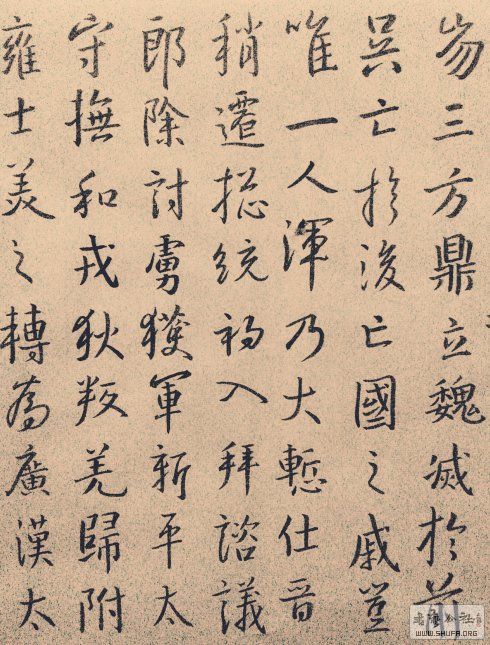 三方鼎立魏滅於前
吳亡於後亡國之戚豈
唯一人渾乃大慙仕晉
稍遷揔統入拜諮議
郎除討虜獲軍新平太
守撫和戎狄叛羌歸附
雍士美之轉為廣漢太
WWW.SHUFA.ORG